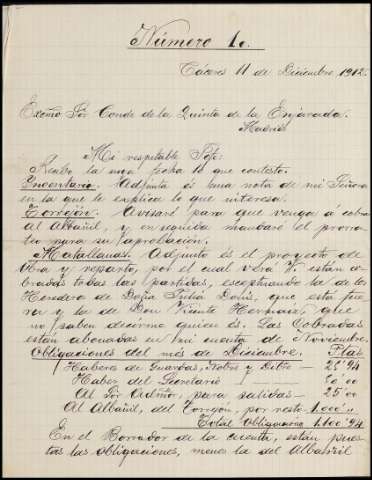 Número 1o.
Cáceres 11 de Diciembre 1912.
Excmo Sor Conde de la Quinta de la Enjarada.
Madrid
Mi respetable Jefe:
Recibo la suya fecha lo que contesto.
Inventario. Adjunta és una nota de mi Señora
en la que le explica lo que interesa.
Torrejón. Avisaré para que venga á cobrar
al Albañil, y en seguida mandaré el prorra-
teo para su aprobación.
Matallanas. Adjunto és el proyecto de
Obra y reparto, por el cual verá V. están co-
bradas todas las partidas, esceptuando la de los
Herederos de Doña Julia, que está fue-
ra y la de Don Vicente, que
no saben decirme quien és. Las Cobradas
están abonadas en mi cuenta de Noviembre.
Obligaciones del mes de Diciembre. Ptas
Haberes de Guardas, Nobre y Dbre
Haber del Secretario
Al Sor Admor, para salidas 25 00
Al Albañil, del Torrejón, por resto 1.000 "
Total obligaciones
En el Borrador de la cuenta, están pues-
tas las obligaciones, menos la del Albañil